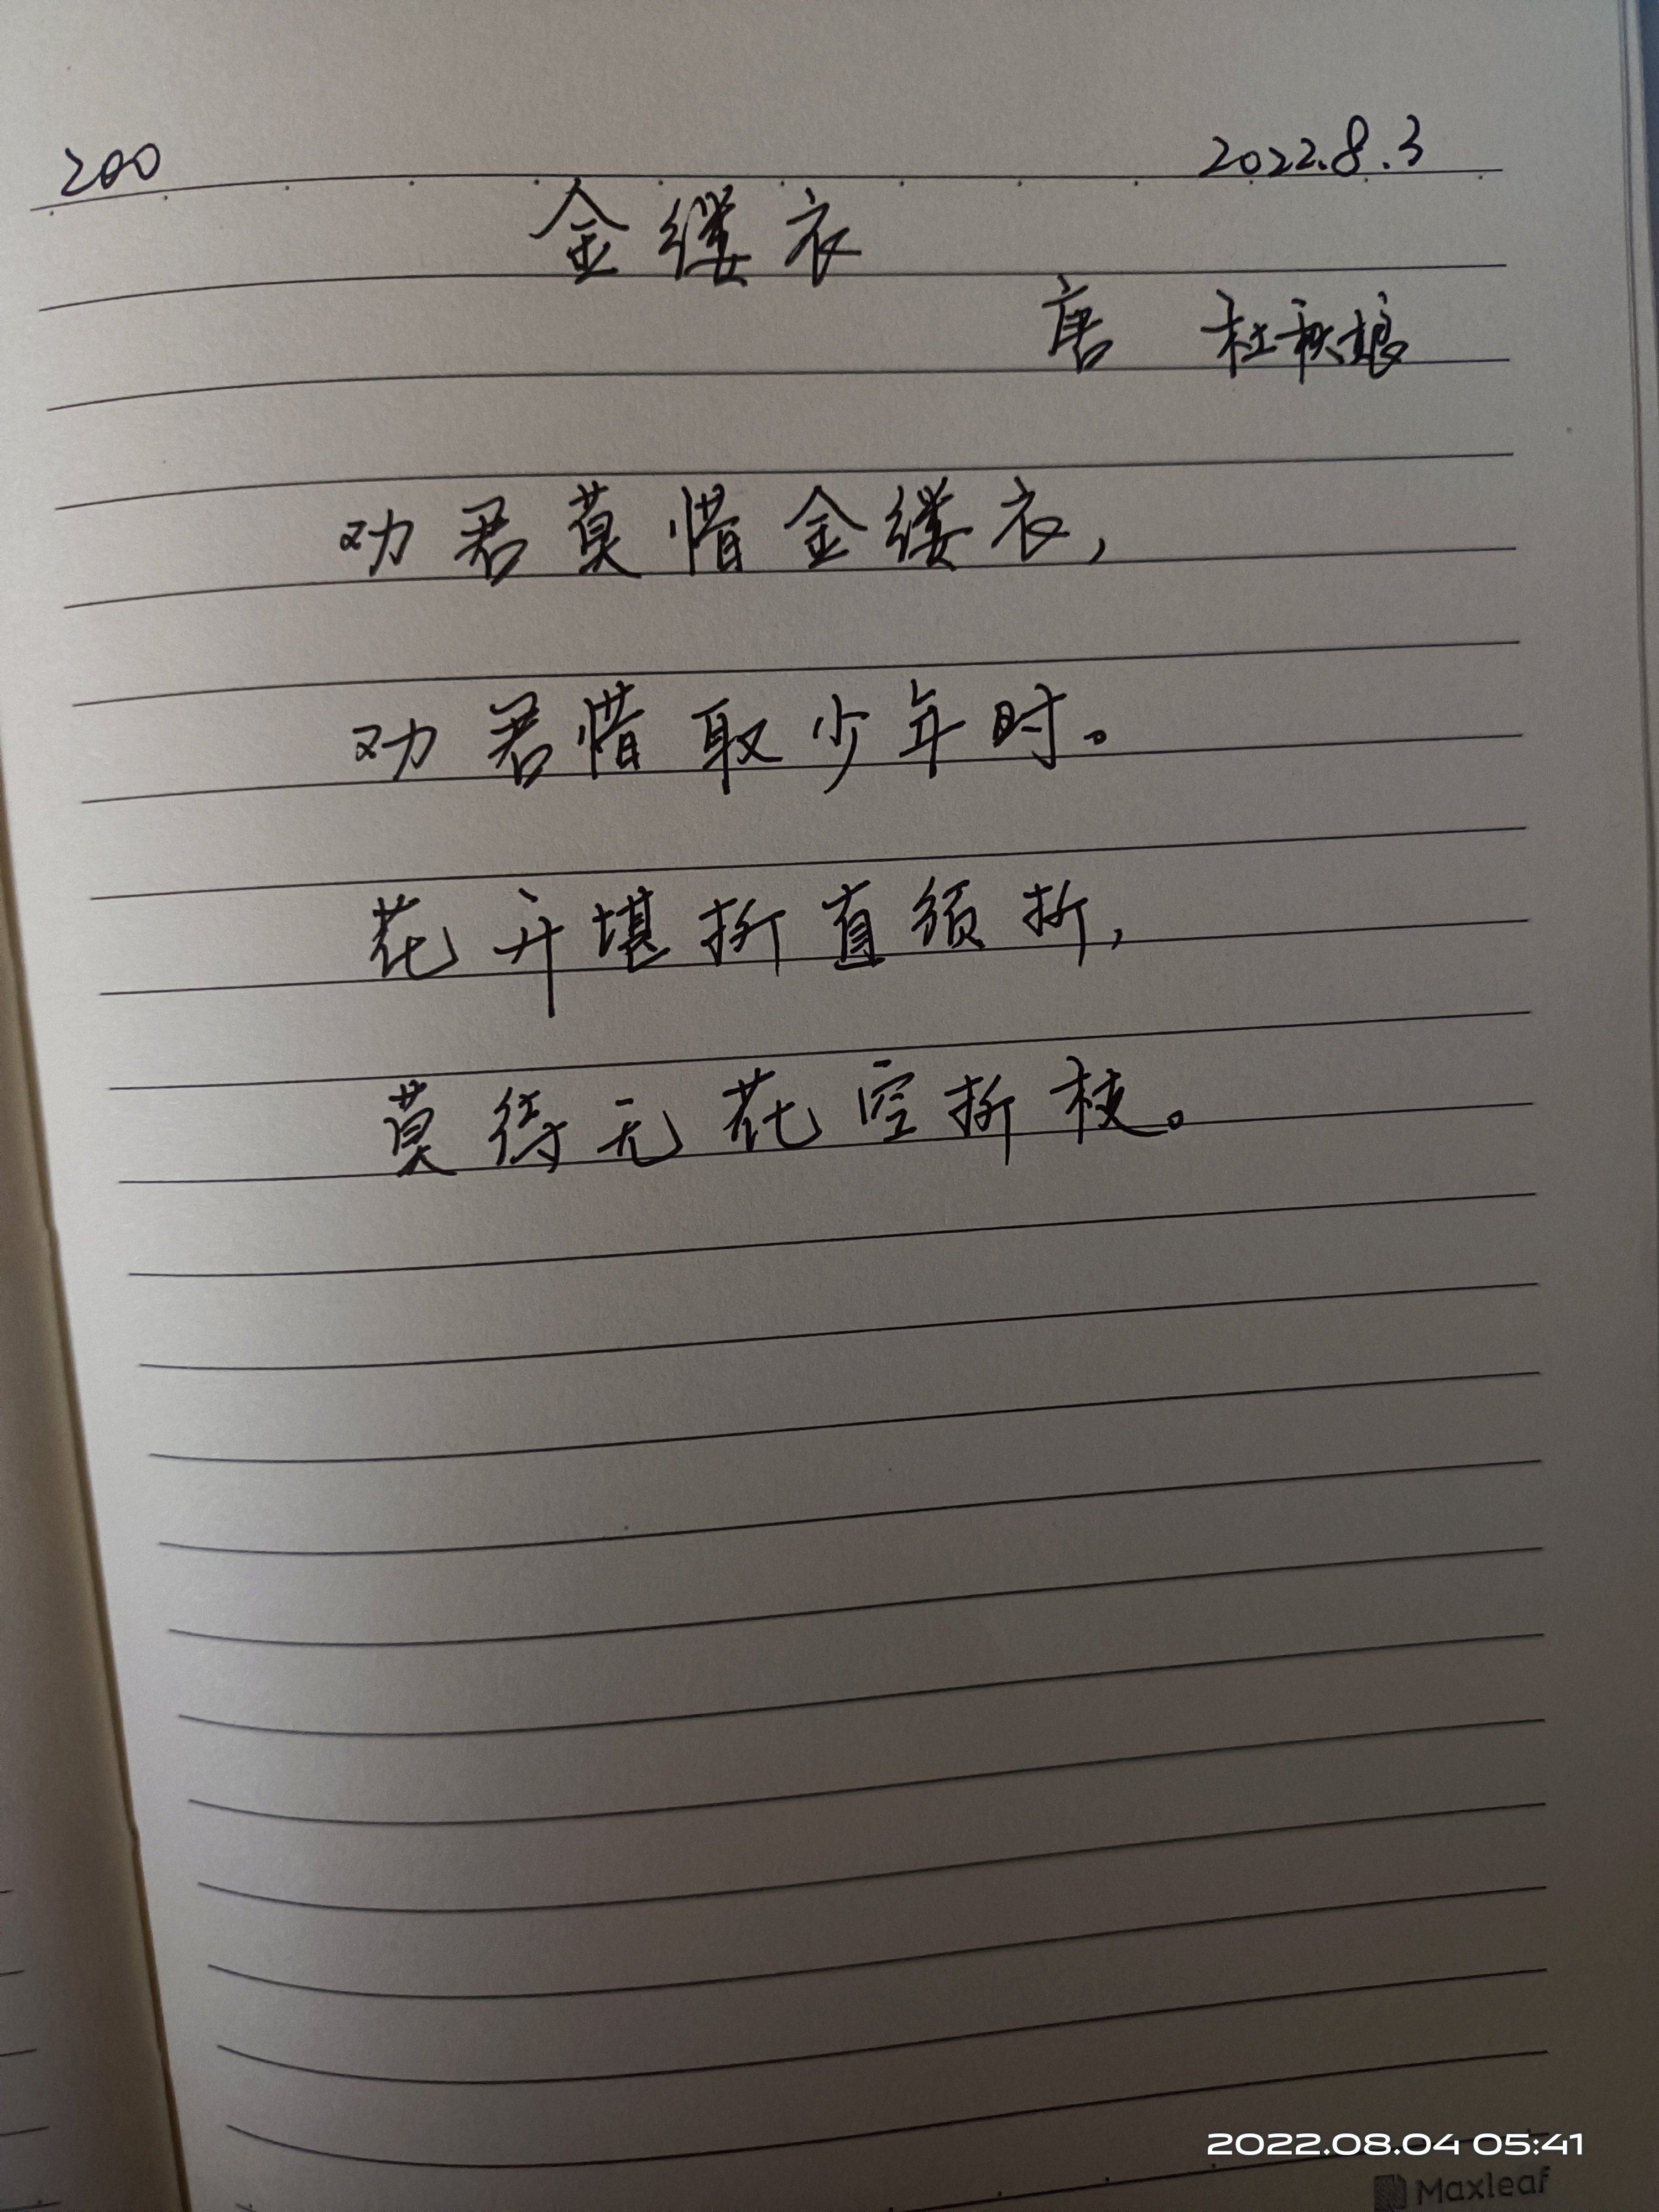 200 2022.8.3
金缕衣
唐 杜秋娘
劝君莫惜金缕衣，
劝君惜取少年时。
花开堪折直须折，
莫待无花空折枝。
2022.08.04 05:41
Maxleaf